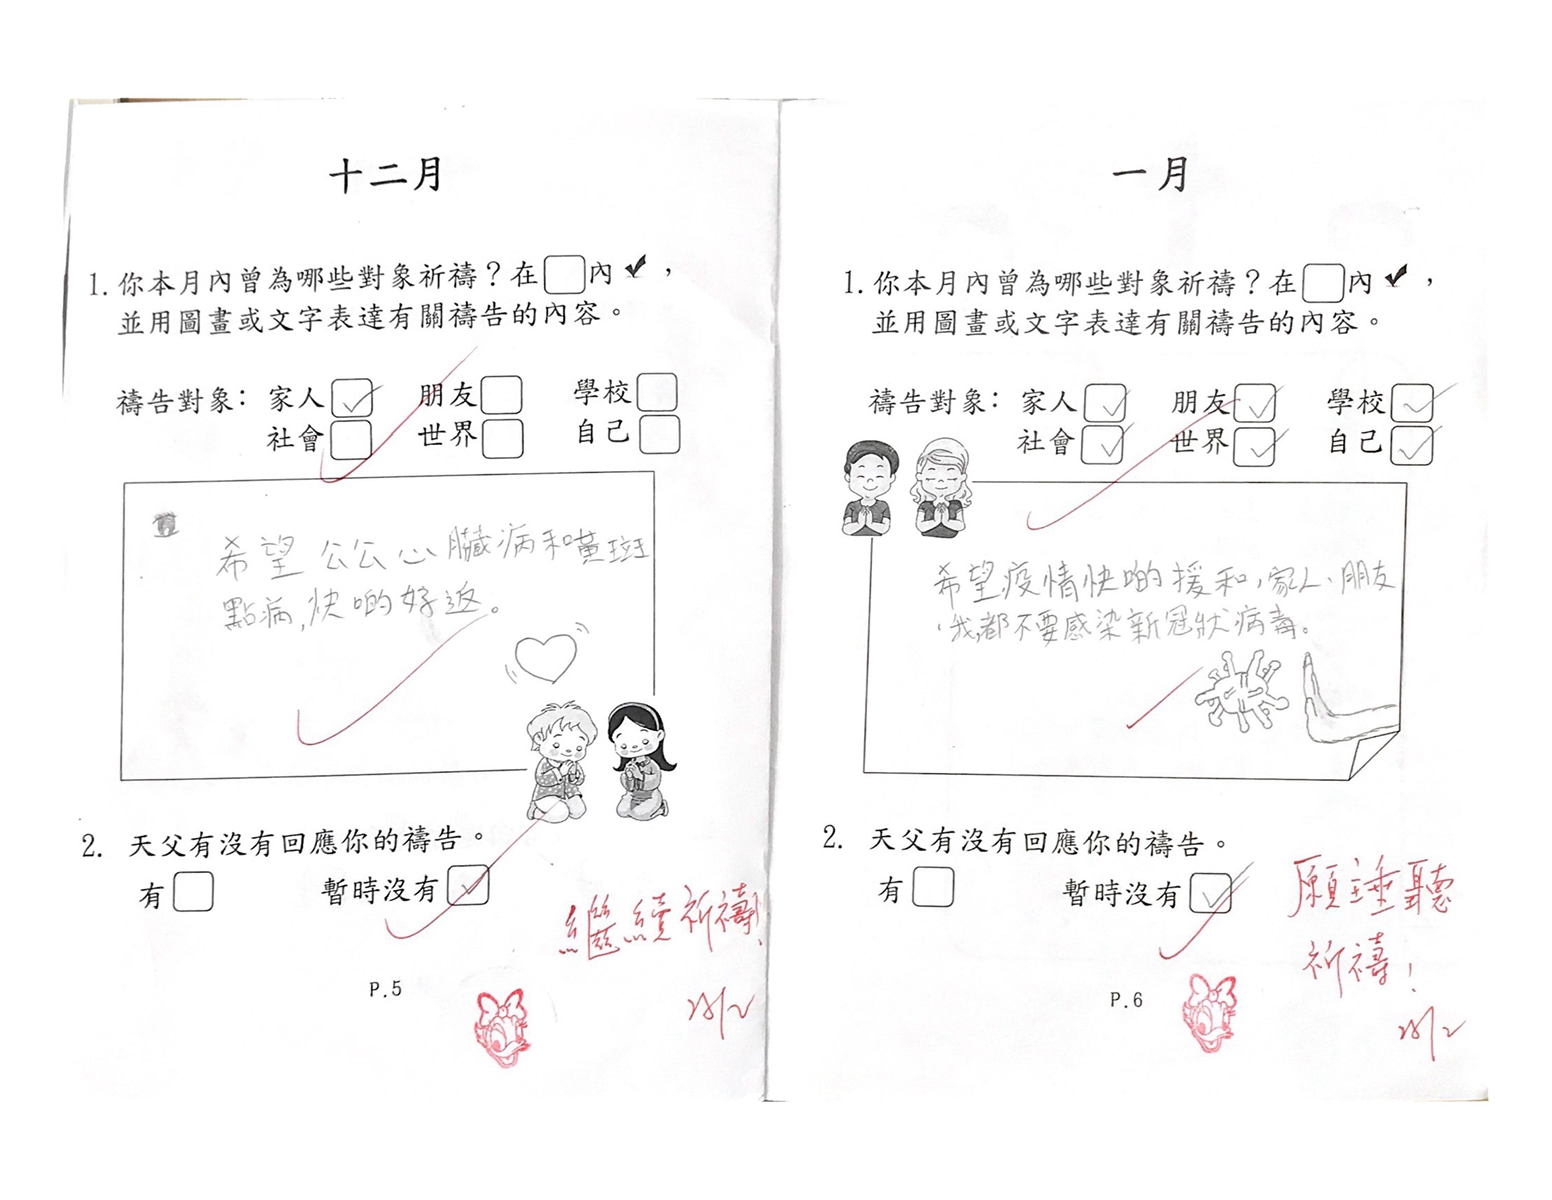 十二月
1. 你本月內曾為哪些對象祈禱？在□內✔，
並用圖畫或文字表達有關禱告的內容。
禱告對象： 家人☑ 朋友□ 學校□
社會□ 世界□ 自己□
希望公公心臟病和黃斑
點病,快啲好返。
2. 天父有沒有回應你的禱告。
有□ 暫時沒有☑
繼續祈禱!
P.5
一月
1. 你本月內曾為哪些對象祈禱？在□內✔，
並用圖畫或文字表達有關禱告的內容。
禱告對象： 家人☑ 朋友☑ 學校☑
社會☑ 世界☑ 自己☑
希望疫情快啲援和,家人、朋友
、我,都不要感染新冠狀病毒。
2. 天父有沒有回應你的禱告。
有□ 暫時沒有☑
願垂聽
祈禱!
P.6